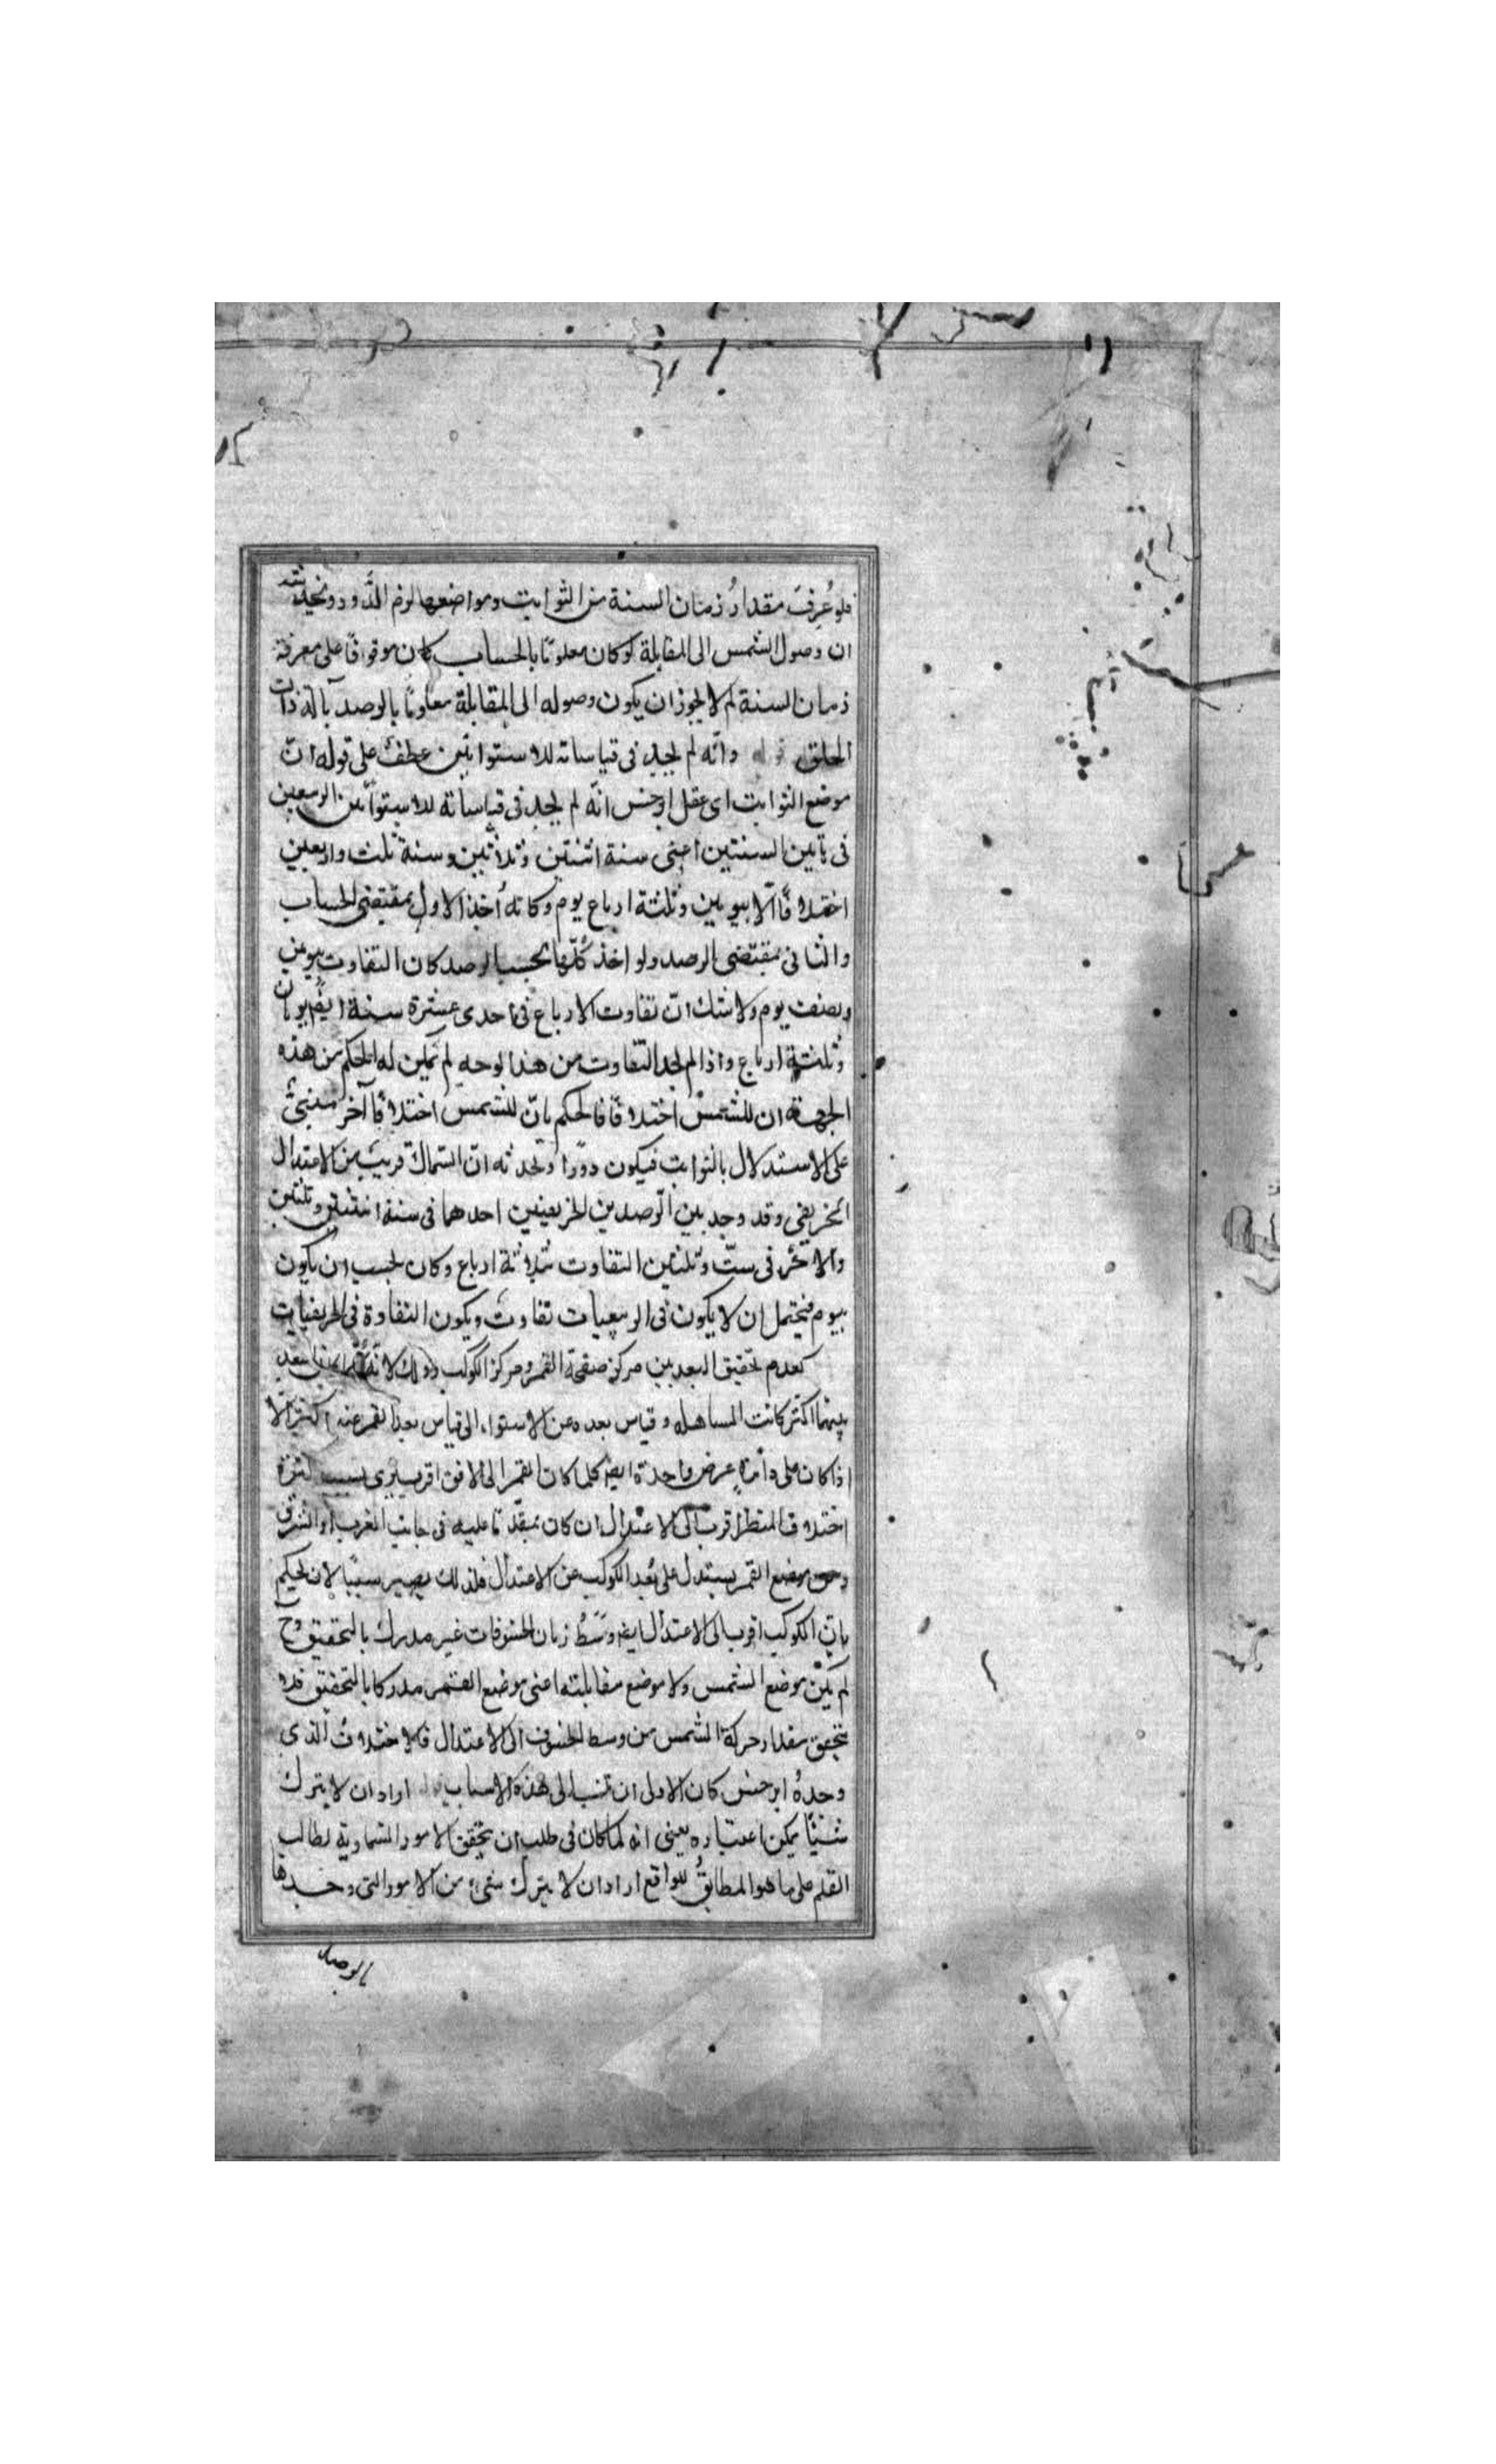 فلو عُرِفَ مقدارُ زمان السنة من الثوابت ومواضعها لزم الدَّور وتخدشه
ان وصول الشمس الى المقابلة لو كان معلومًا بالحساب كان موقوفًا على معرفة
زمان السنة لم لا يجوز ان يكون وصوله الى المقابلة معلومًا بالرصد بآلة ذات
الحلق وانّه لم يجد فى قياساته للاستوائين عطفٌ على قوله انّ
موضع الثوابت اى عقل ابرخس انّه لم يجد فى قياساته للاستوائين الربيعيين
فى تاين السنتين اعنى سنة اثنتين وثلاثين وسنة ثلث واربعين
اختلافًا الّا بيومين وثلثة ارباع يوم وكانه أخذ الاول بمقتضى الحساب
والثانى بمقتضى الرصد ولو اخذ كُلّها بحسب الرصد كان التفاوت بيومين
ونصف يوم ولا شك انّ تفاوت الارباع فى احدى عشرة سنة ايضًا يومان
وثلثة ارباع واذا لم يجد التفاوت من هذا الوجه لم يمكن له الحكم من هذه
الجهة ان للشمس اختلافًا فالحكم بانّ للشمس اختلافًا آخر مبنىٌّ
على الاستدلال بالثوابت فيكون دورًا وتخدشه انّ السّماك قريبٌ من الاعتدال
الخريفى وقد وجد بين الرصدين الخريفيين احدهما فى سنة اثنتين وثلثين
والآخر فى ستّ وثلثين التفاوت ثلاثة ارباع وكان يجب ان يكون
بيوم فيحتمل ان لا يكون فى الربيعيات تفاوت ويكون التفاوة فى الخريفيات
كعدم تحقيق البعد بين مركز صفحة القمر ومركز الكوكب وذلك لانّه بعد
بينهما اكثر كانت المساهلة وقياس بعده عن الاستواء الى قياس بعد القمر عنه اكثر الّا
اذا كان على دائرة عرض واحدة ايضًا كلما كان القمر الى الافق اقرب يرى بسبب كثرة
اختلاف المنظر اقرب الى الاعتدال ان كان متقدّمًا عليه فى جانب المغرب او الشرق
ومن موضع القمر يستدل على بُعد الكوكب عن الاعتدال فلذلك يصير سببًا لان يحكم
بانّ الكوكب اقرب الى الاعتدال ايضًا ووسَطُ زمان الخسوفات غير مدرك بالتحقيق وح
لم يكن موضع الشمس ولا موضع مقابلته اعنى موضع القمر مدركا بالتحقيق فلا
يتحقق مقدار حركة الشمس من وسط الخسوف الى الاعتدال فالاختلافُ الذى
وجدهُ ابرخس كان الاولى ان تنسب الى هذه الاسباب اراد ان لا يترك
شيئًا يمكن اعتباره يعنى انه لما كان فى طلب ان يتحقق الامور السماوية لطالب
القلم على ما هو المطابقُ للواقع اراد ان لا يترك شىء من الامور التى وجدها
بالرصد